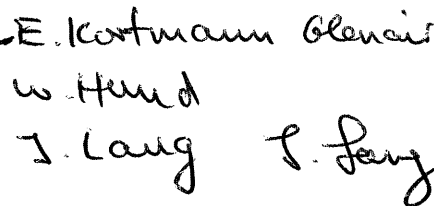 E. Kortmann Glenair
W. Hund
J. Lang J. Lang